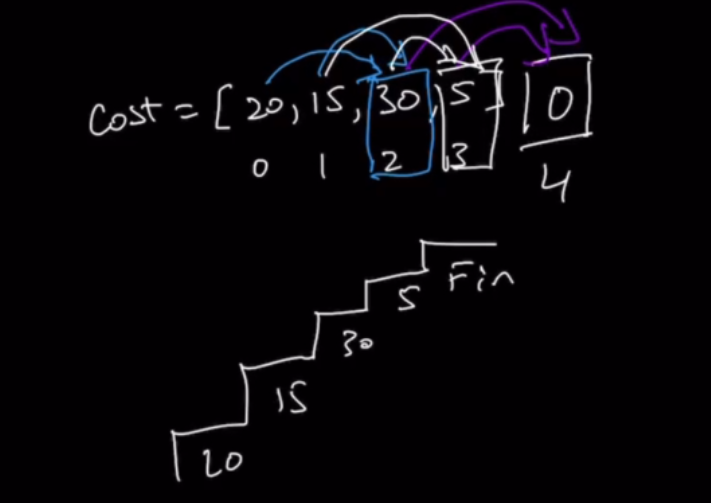 cost = [ 20, 15, 30, 5 ] 0
0 1 2 3 4
Fin
5
30
15
20